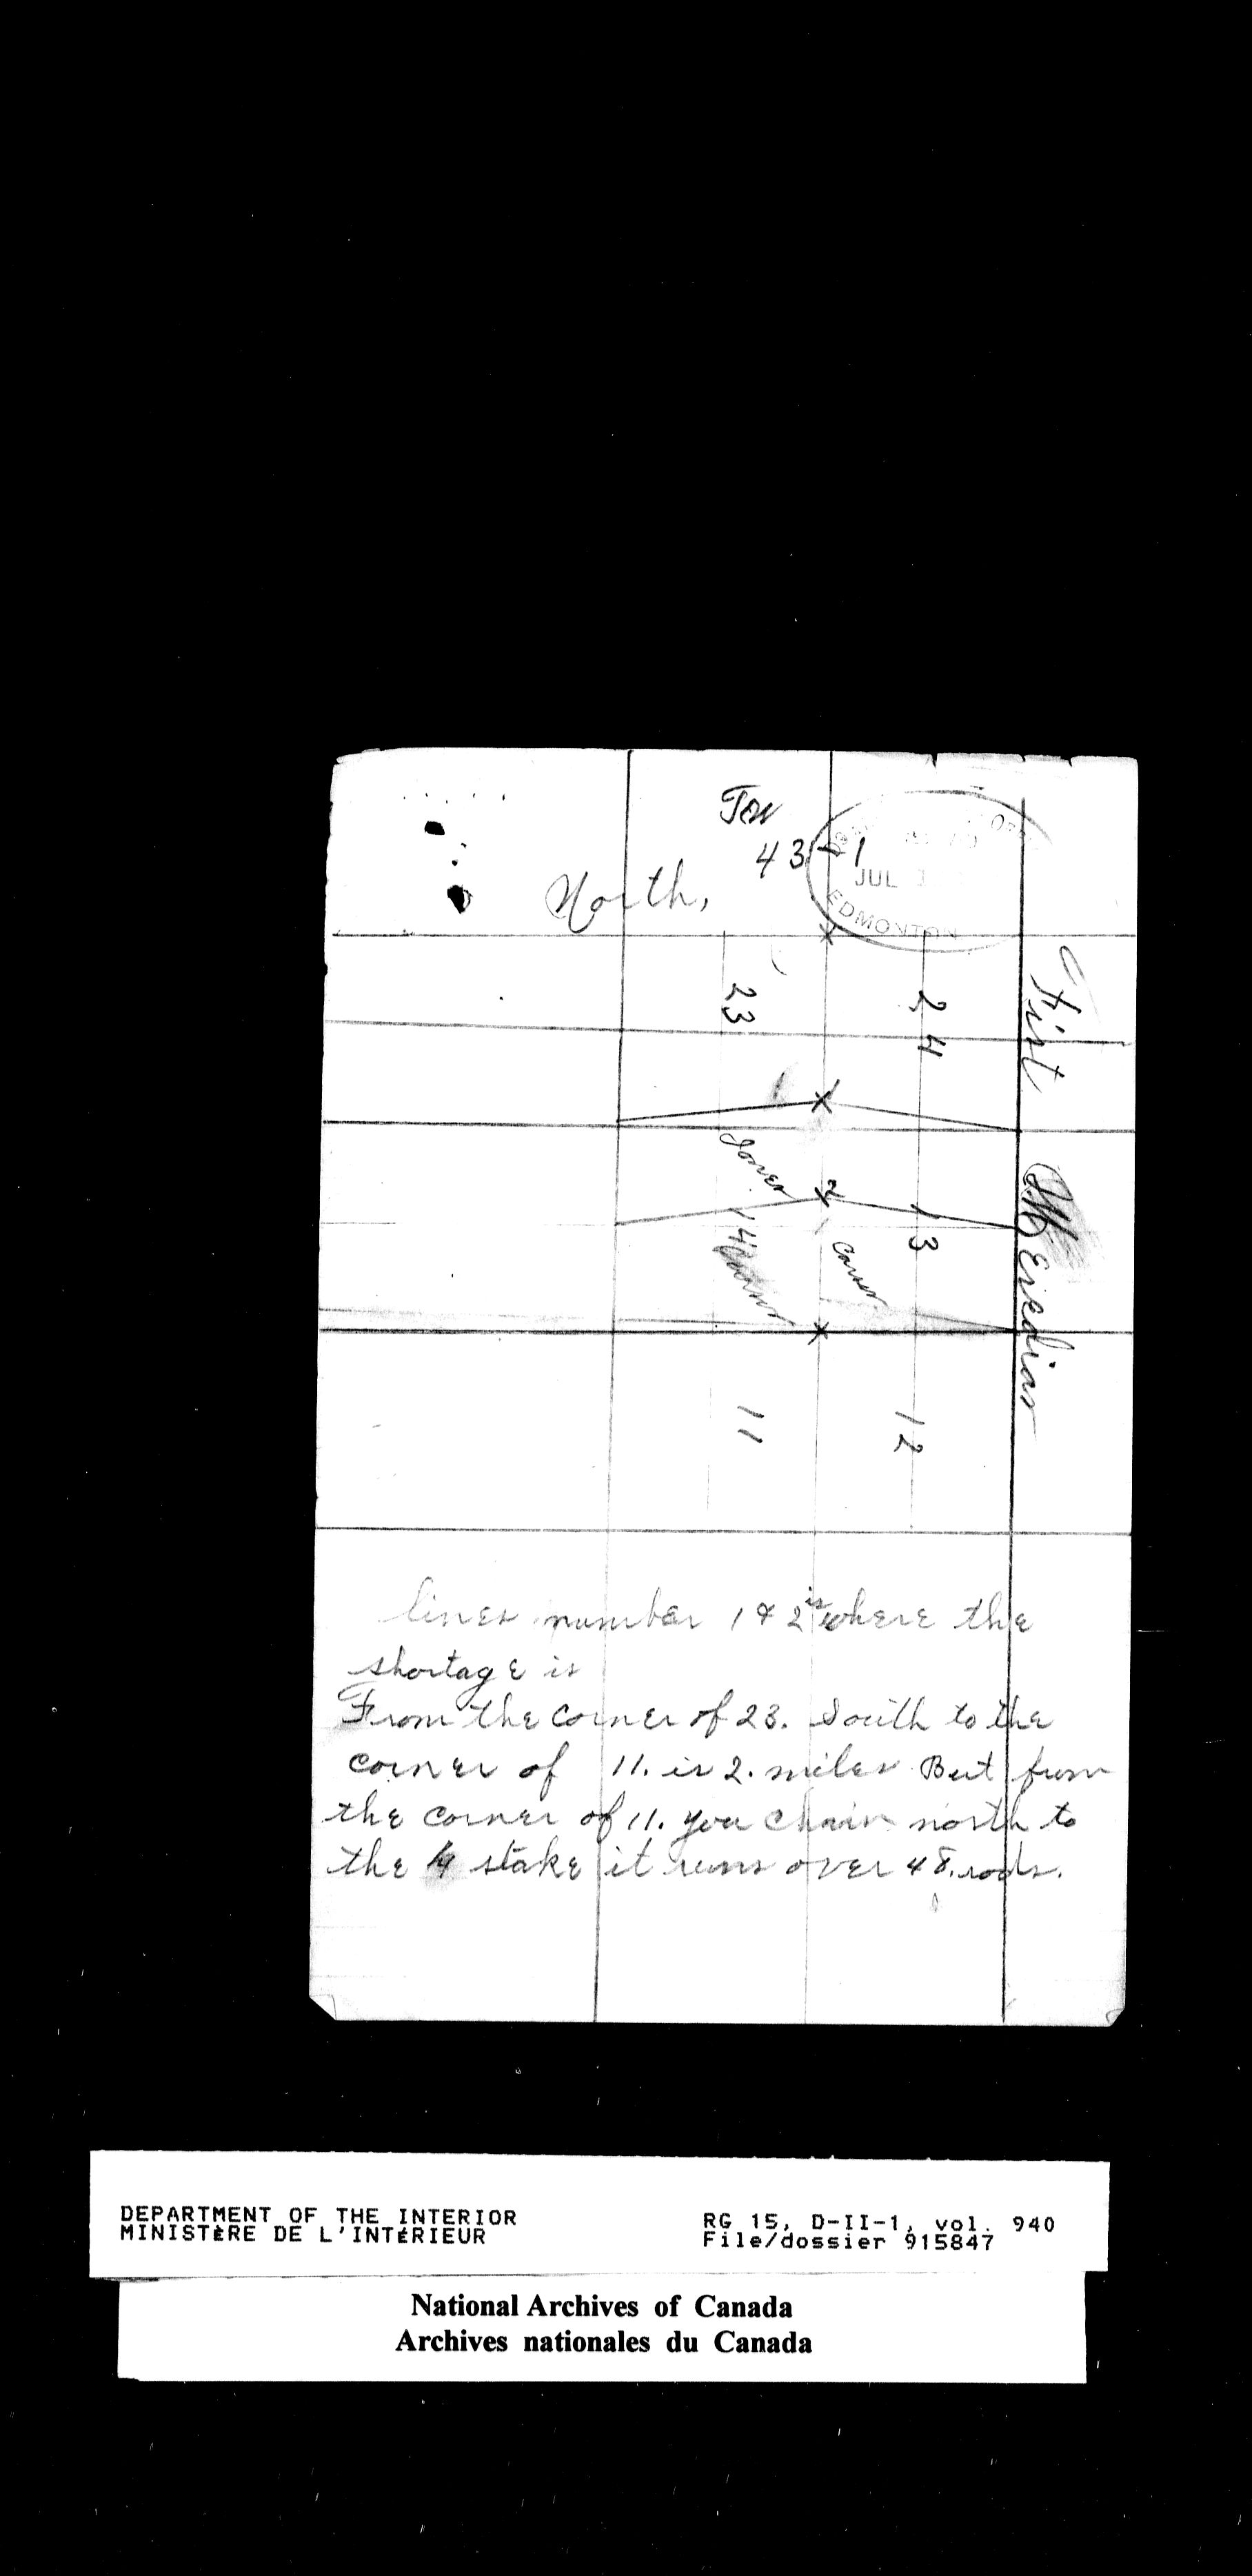 Tow
43 - 1
JUL
EDMONTON
North,
First Meridian
23
24
1
Jones
2
13
14
Carson
11
12
lines number 1 & 2 is where the
shortage is
From the corner of 23. South to the
corner of 11. is 2. miles But from
the corner of 11. you chain north to
the 1/4 stake it runs over 48. rods.
DEPARTMENT OF THE INTERIOR
MINISTÈRE DE L'INTÉRIEUR
RG 15, D-II-1, vol. 940
File/dossier 915847
National Archives of Canada
Archives nationales du Canada